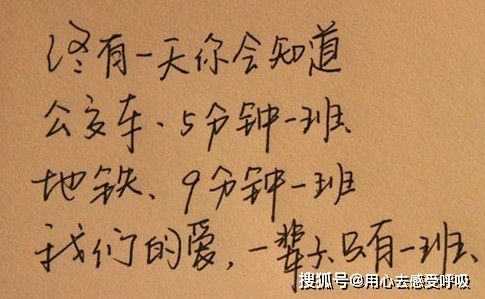 终有一天你会知道
公交车、5分钟一班、
地铁、9分钟一班
我们的爱，一辈子只有一班、
搜狐号@用心去感受呼吸